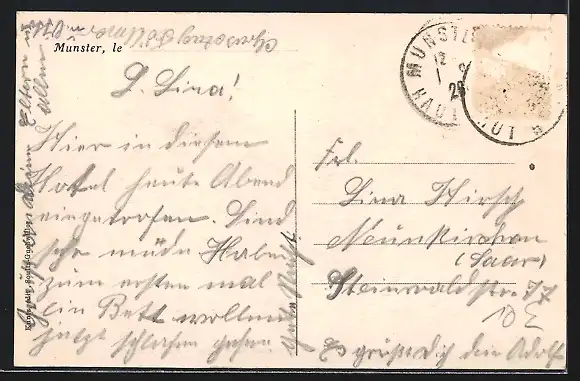 Munster, le
L. Lina!
Hier in diesem
Hotel heute Abend
eingetrofen. Sind
sehr müde. Haben
zum ersten mal
ein Bett wollen
jetzt schlafen gehen.
Gute Nacht.
Es grüßt Dich dein Adolf
Eltern u.
allen
MUNSTER
HAUT-RHIN
12
1
25
Frl.
Lina Hirsch
Neunkirchen
(Saar)
Steinwaldstr. 77